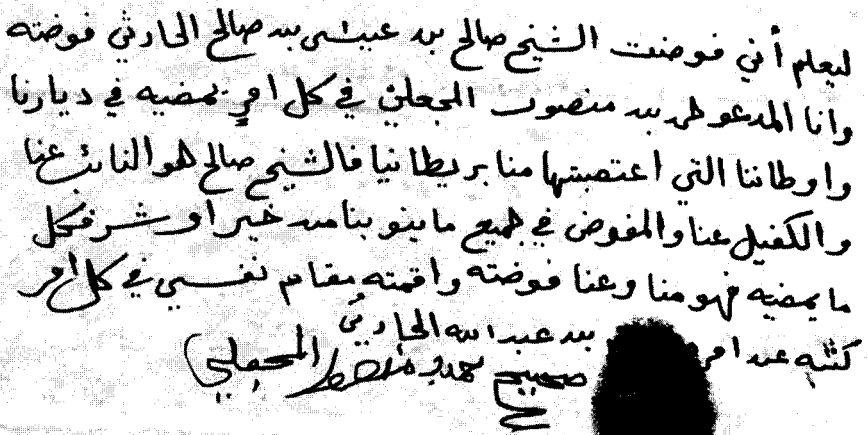 ليعلم أني فوضت الشيخ صالح بن عيسى بن صالح الحارثي فوضته
وانا المدعو علي بن منصور المجعلي في كل امرٍ يمضيه في ديارنا
واوطاننا التي اغتصبتها منا بريطانيا فالشيخ صالح هو النائب عنا
والكفيل عنا والمفوض في جميع ما ينوبنا من خير او شر فكل
ما يمضيه فهو منا وعنا فوضته واقمته مقام نفسي في كل امر
كتبه عن امره بن عبدالله الحارثي
صحيح المجعلي